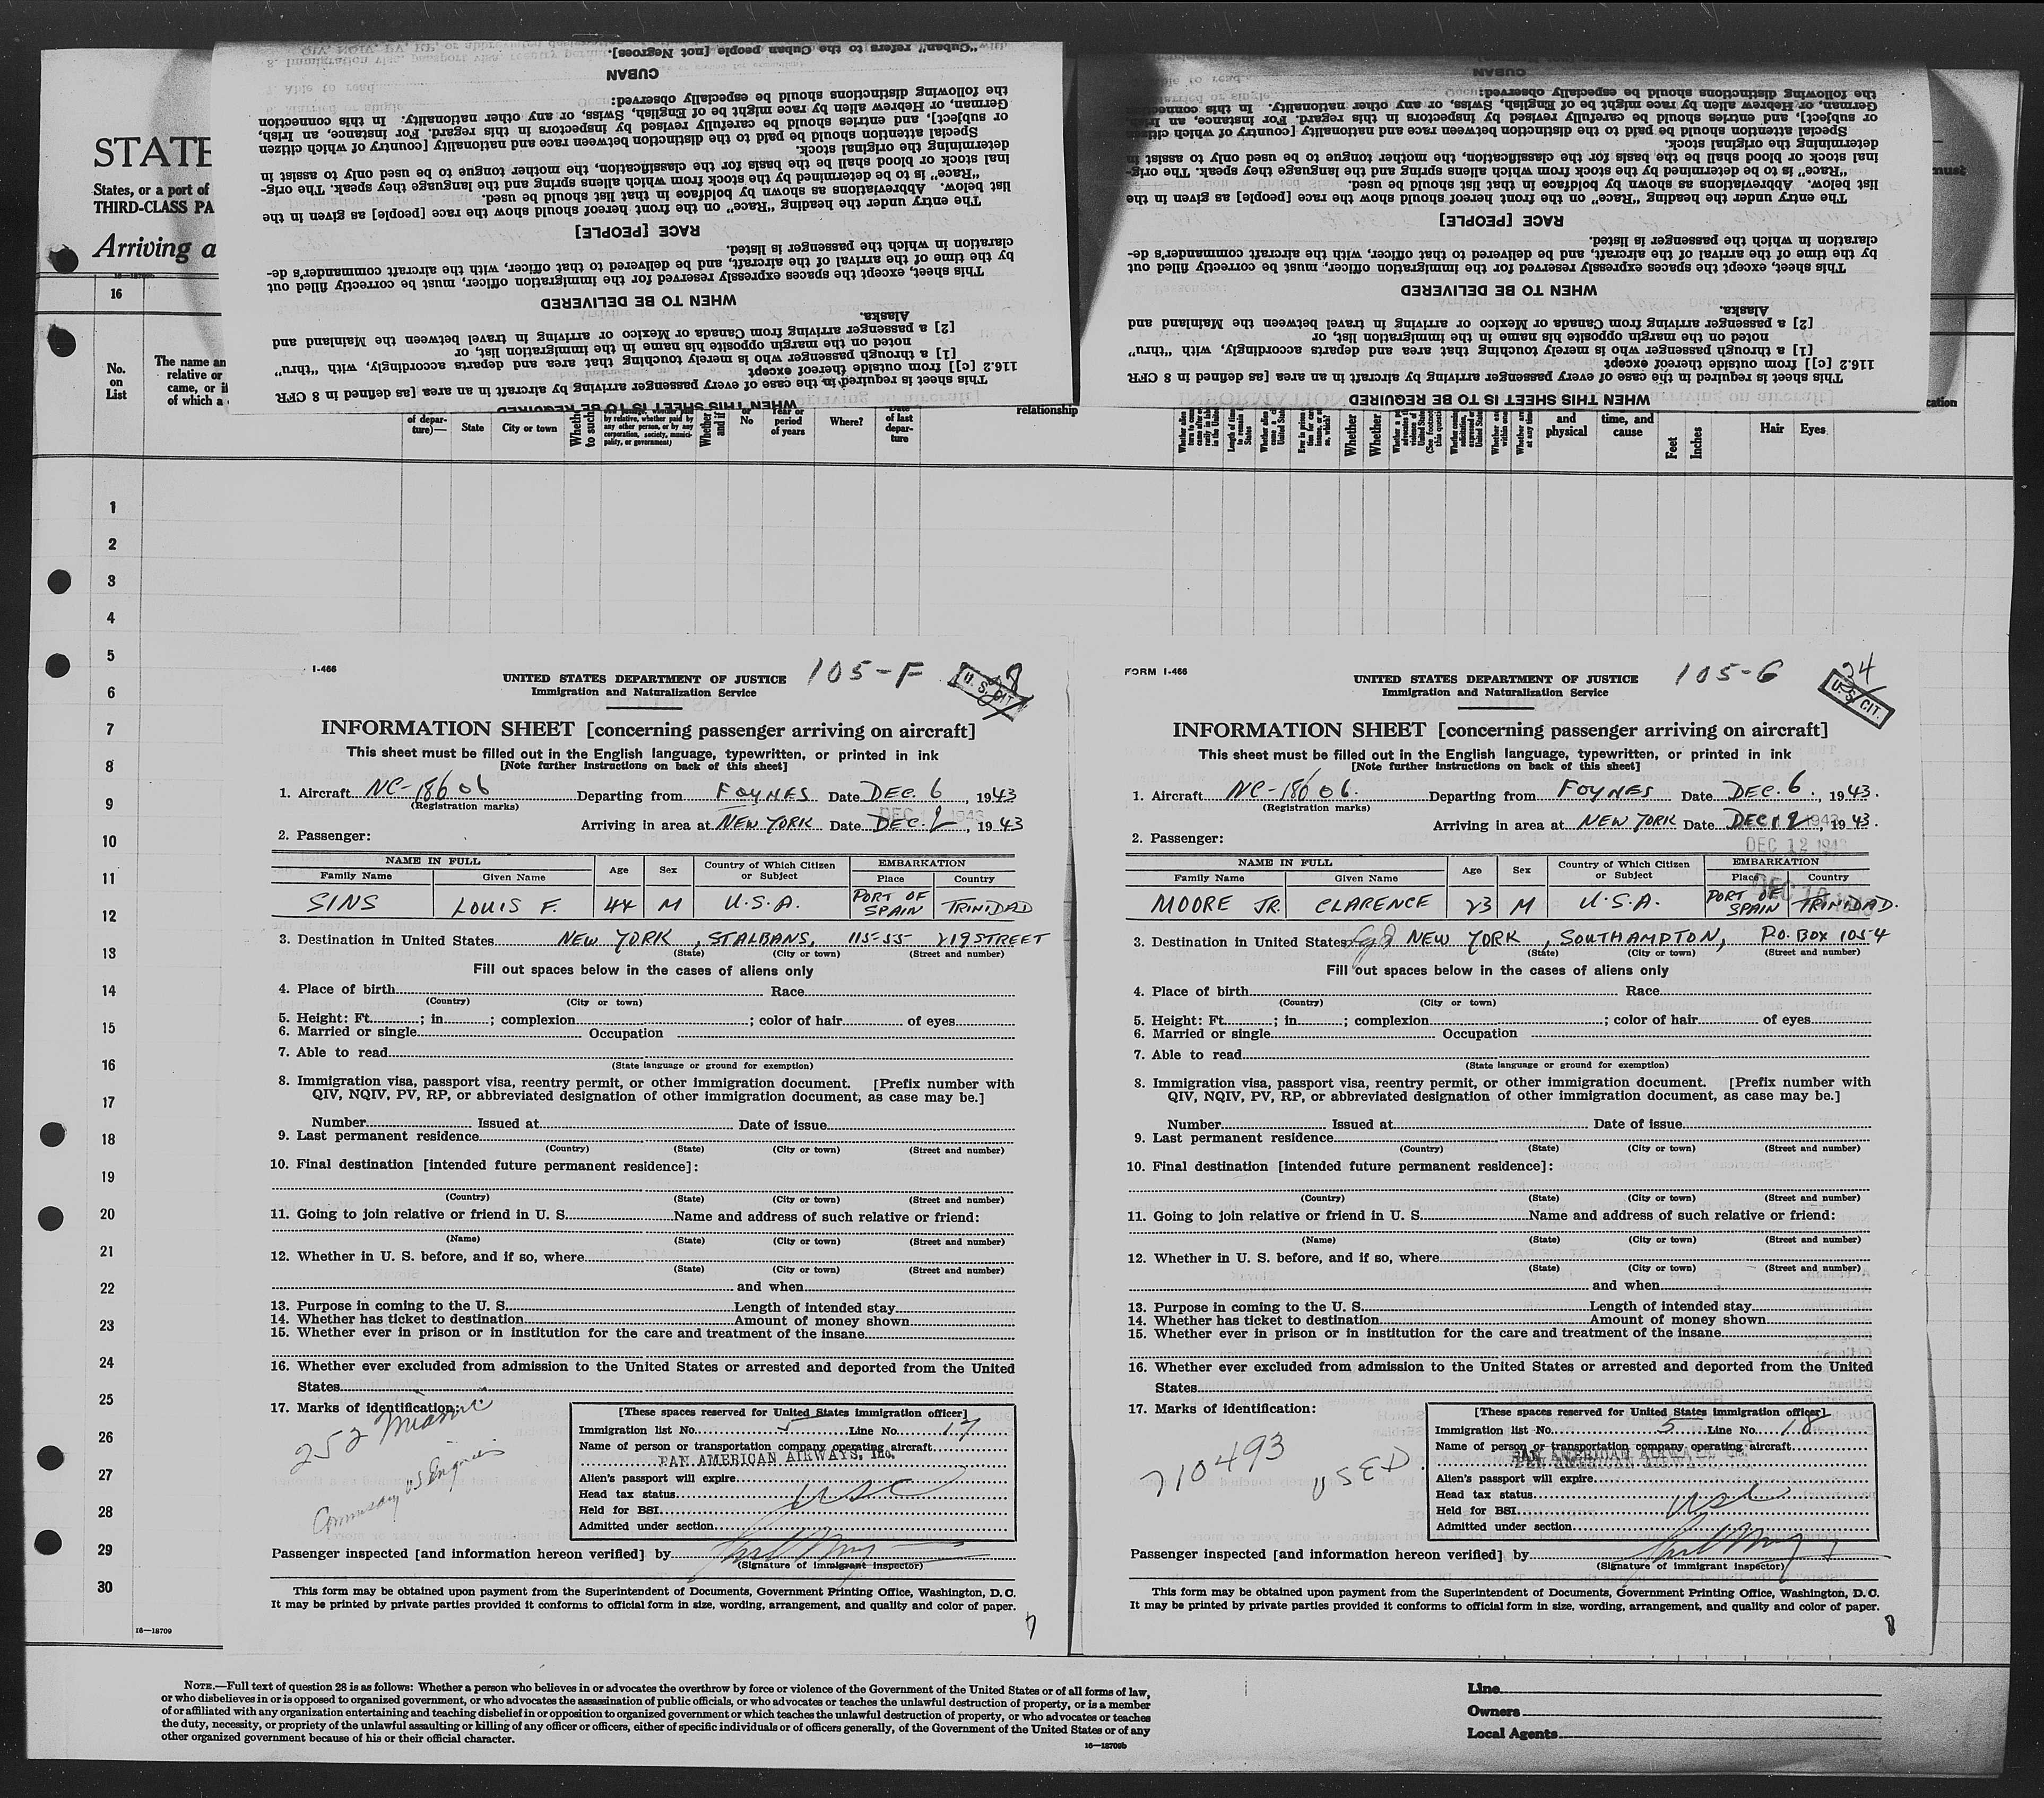 STATE
States, or a port of
THIRD-CLASS PA
Arriving a
16
No.
on
List
The name an
relative or
came, or if
of which a
"Cuban" refers to the Cuban people [not Negroes].
CUBAN
the following distinctions should be especially observed:
German, or Hebrew alien by race might be of English, Swiss, or any other nationality. In this connection
or subject], and entries should be carefully revised by inspectors in this regard. For instance, an Irish,
Special attention should be paid to the distinction between race and nationality [country of which citizen
determining the original stock.
inal stock or blood shall be the basis for the classification, the mother tongue to be used only to assist in
"Race" is to be determined by the stock from which aliens spring and the language they speak. The orig-
list below. Abbreviations as shown by boldface in that list should be used.
The entry under the heading "Race" on the front hereof should show the race [people] as given in the
RACE [PEOPLE]
claration in which the passenger is listed.
by the time of the arrival of the aircraft, and be delivered to that officer, with the aircraft commander's de-
This sheet, except the spaces expressly reserved for the immigration officer, must be correctly filled out
WHEN TO BE DELIVERED
Alaska.
[2] a passenger arriving from Canada or Mexico or arriving in travel between the Mainland and
noted on the margin opposite his name in the immigration list, or
[1] a through passenger who is merely touching that area and departs accordingly, with "thru"
116.2 [c]] from outside thereof except
This sheet is required in the case of every passenger arriving by aircraft in an area [as defined in 8 CFR
WHEN THIS SHEET IS TO BE REQUIRED
CUBAN
the following distinctions should be especially observed:
German, or Hebrew alien by race might be of English, Swiss, or any other nationality. In this connection
or subject], and entries should be carefully revised by inspectors in this regard. For instance, an Irish,
Special attention should be paid to the distinction between race and nationality [country of which citizen
determining the original stock.
inal stock or blood shall be the basis for the classification, the mother tongue to be used only to assist in
"Race" is to be determined by the stock from which aliens spring and the language they speak. The orig-
list below. Abbreviations as shown by boldface in that list should be used.
The entry under the heading "Race" on the front hereof should show the race [people] as given in the
RACE [PEOPLE]
claration in which the passenger is listed.
by the time of the arrival of the aircraft, and be delivered to that officer, with the aircraft commander's de-
This sheet, except the spaces expressly reserved for the immigration officer, must be correctly filled out
WHEN TO BE DELIVERED
Alaska.
[2] a passenger arriving from Canada or Mexico or arriving in travel between the Mainland and
noted on the margin opposite his name in the immigration list, or
[1] a through passenger who is merely touching that area and departs accordingly, with "thru"
116.2 [c]] from outside thereof except
This sheet is required in the case of every passenger arriving by aircraft in an area [as defined in 8 CFR
WHEN THIS SHEET IS TO BE REQUIRED
must
cation
of depar-
ture)—
State
City or town
or
No
Year or
period
of years
Where?
Date
of last
depar-
ture
relationship
and
physical
time, and
cause
Feet
Inches
Hair
Eyes
1
2
3
4
5
6
7
8
9
10
11
12
13
14
15
16
17
18
19
20
21
22
23
24
25
26
27
28
29
30
16—18709
I-466
105-F
U.S. CIT.
UNITED STATES DEPARTMENT OF JUSTICE
Immigration and Naturalization Service
INFORMATION SHEET [concerning passenger arriving on aircraft]
This sheet must be filled out in the English language, typewritten, or printed in ink
[Note further instructions on back of this sheet]
1. Aircraft NC-18606 Departing from FOYNES Date DEC. 6, 1943
(Registration marks)
Arriving in area at NEW YORK Date DEC. 9, 1943
2. Passenger:
NAME IN FULL Age Sex Country of Which Citizen or Subject EMBARKATION
Family Name Given Name Place Country
SINS LOUIS F. 44 M U.S.A. PORT OF SPAIN TRINIDAD
3. Destination in United States NEW YORK, ST ALBANS, 115-55 219 STREET
(State) (City or town) (Street and number)
Fill out spaces below in the cases of aliens only
4. Place of birth Race
(Country) (City or town)
5. Height: Ft. ; in. ; complexion ; color of hair of eyes
6. Married or single Occupation
7. Able to read
(State language or ground for exemption)
8. Immigration visa, passport visa, reentry permit, or other immigration document. [Prefix number with
QIV, NQIV, PV, RP, or abbreviated designation of other immigration document, as case may be.]
Number Issued at Date of issue
9. Last permanent residence
(Country) (State) (City or town) (Street and number)
10. Final destination [intended future permanent residence]:
(Country) (State) (City or town) (Street and number)
11. Going to join relative or friend in U. S. Name and address of such relative or friend:
(Name) (State) (City or town) (Street and number)
12. Whether in U. S. before, and if so, where
(State) (City or town) (Street and number)
and when
13. Purpose in coming to the U. S. Length of intended stay
14. Whether has ticket to destination Amount of money shown
15. Whether ever in prison or in institution for the care and treatment of the insane
16. Whether ever excluded from admission to the United States or arrested and deported from the United
States
17. Marks of identification:
252 Miami
[These spaces reserved for United States immigration officer]
Immigration list No. 5 Line No. 17
Name of person or transportation company operating aircraft
PAN AMERICAN AIRWAYS, Inc.
Alien's passport will expire
Head tax status USC
Held for BSI
Admitted under section
Passenger inspected [and information hereon verified] by
(Signature of immigrant inspector)
This form may be obtained upon payment from the Superintendent of Documents, Government Printing Office, Washington, D. C.
It may be printed by private parties provided it conforms to official form in size, wording, arrangement, and quality and color of paper.
7
FORM I-466
105-G
24
U.S. CIT.
UNITED STATES DEPARTMENT OF JUSTICE
Immigration and Naturalization Service
INFORMATION SHEET [concerning passenger arriving on aircraft]
This sheet must be filled out in the English language, typewritten, or printed in ink
[Note further instructions on back of this sheet]
1. Aircraft NC-18606. Departing from FOYNES Date DEC. 6., 1943.
(Registration marks)
Arriving in area at NEW YORK Date DEC 12, 1943.
DEC 12 1943
2. Passenger:
NAME IN FULL Age Sex Country of Which Citizen or Subject EMBARKATION
Family Name Given Name Place Country
MOORE JR. CLARENCE 23 M U.S.A. PORT OF SPAIN TRINIDAD.
3. Destination in United States NEW YORK, SOUTHAMPTON, P.O. BOX 1054
(State) (City or town) (Street and number)
Fill out spaces below in the cases of aliens only
4. Place of birth Race
(Country) (City or town)
5. Height: Ft. ; in. ; complexion ; color of hair of eyes
6. Married or single Occupation
7. Able to read
(State language or ground for exemption)
8. Immigration visa, passport visa, reentry permit, or other immigration document. [Prefix number with
QIV, NQIV, PV, RP, or abbreviated designation of other immigration document, as case may be.]
Number Issued at Date of issue
9. Last permanent residence
(Country) (State) (City or town) (Street and number)
10. Final destination [intended future permanent residence]:
(Country) (State) (City or town) (Street and number)
11. Going to join relative or friend in U. S. Name and address of such relative or friend:
(Name) (State) (City or town) (Street and number)
12. Whether in U. S. before, and if so, where
(State) (City or town) (Street and number)
and when
13. Purpose in coming to the U. S. Length of intended stay
14. Whether has ticket to destination Amount of money shown
15. Whether ever in prison or in institution for the care and treatment of the insane
16. Whether ever excluded from admission to the United States or arrested and deported from the United
States
17. Marks of identification:
710493 USED.
[These spaces reserved for United States immigration officer]
Immigration list No. 5 Line No. 18
Name of person or transportation company operating aircraft
PAN AMERICAN AIRWAYS
Alien's passport will expire
Head tax status USC
Held for BSI
Admitted under section
Passenger inspected [and information hereon verified] by
(Signature of immigrant inspector)
This form may be obtained upon payment from the Superintendent of Documents, Government Printing Office, Washington, D. C.
It may be printed by private parties provided it conforms to official form in size, wording, arrangement, and quality and color of paper.
8
NOTE.—Full text of question 28 is as follows: Whether a person who believes in or advocates the overthrow by force or violence of the Government of the United States or of all forms of law,
or who disbelieves in or is opposed to organized government, or who advocates the assassination of public officials, or who advocates or teaches the unlawful destruction of property, or is a member
of or affiliated with any organization entertaining and teaching disbelief in or opposition to organized government or which teaches the unlawful destruction of property, or who advocates or teaches
the duty, necessity, or propriety of the unlawful assaulting or killing of any officer or officers, either of specific individuals or of officers generally, of the Government of the United States or of any
other organized government because of his or their official character.
16—18709b
Line
Owners
Local Agents